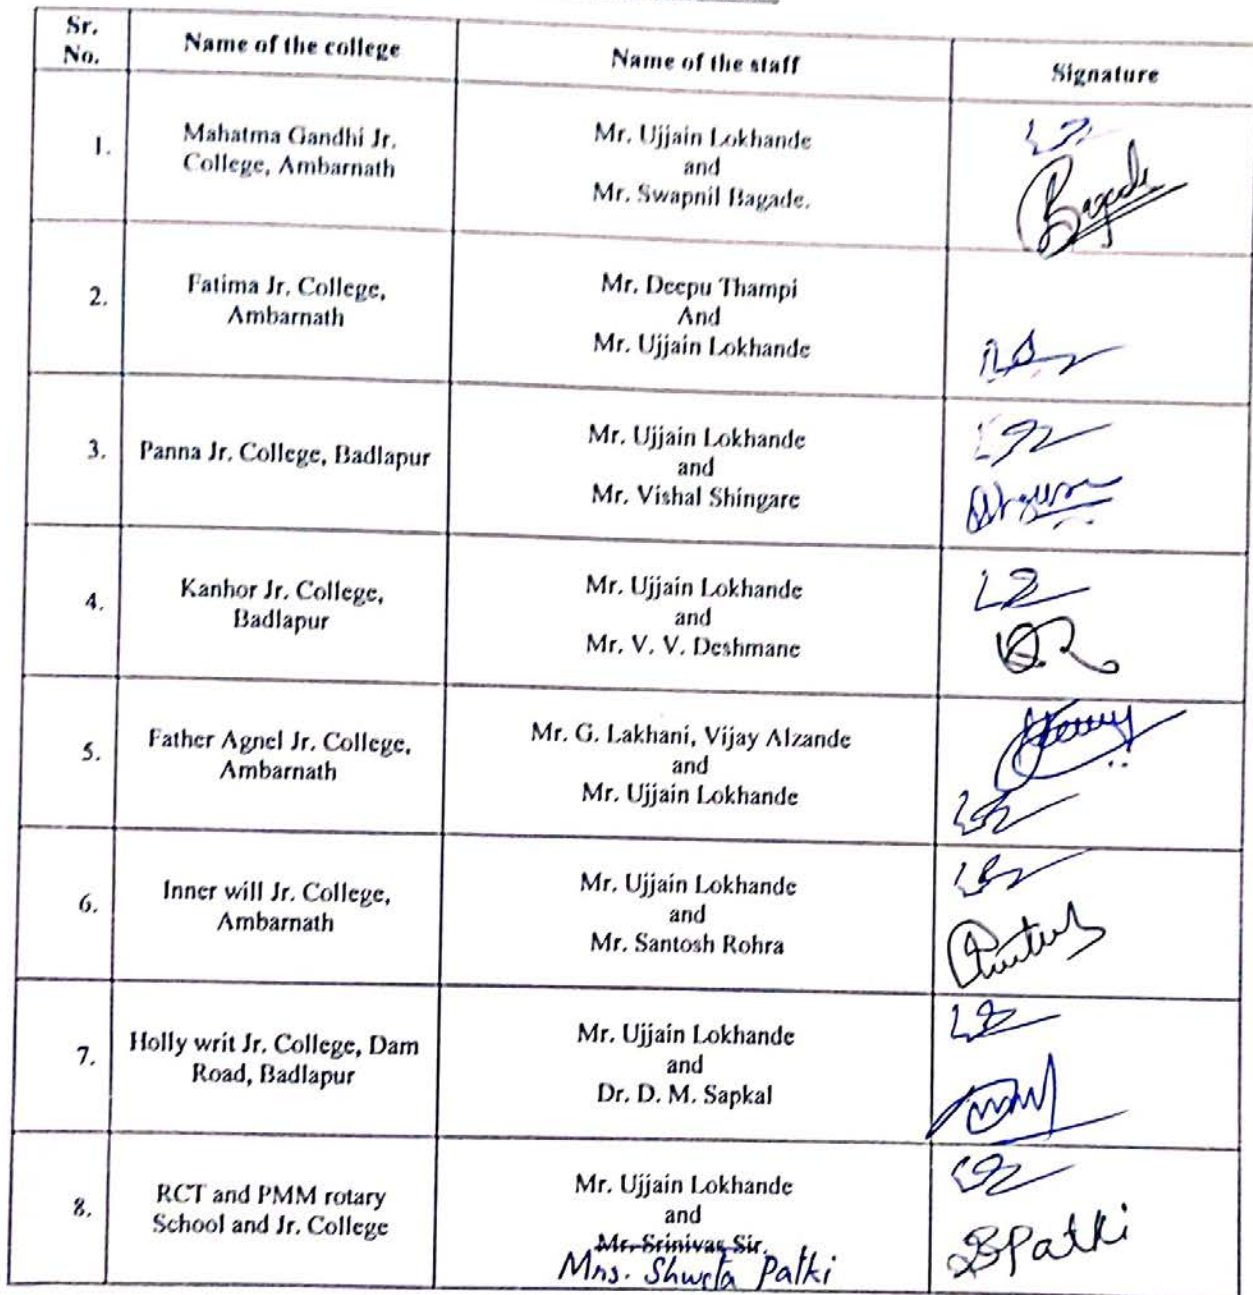 Sr.
No.
Name of the college
Name of the staff
Signature
1.
Mahatma Gandhi Jr.
College, Ambarnath
Mr. Ujjain Lokhande
and
Mr. Swapnil Bagade.
Bagade
2.
Fatima Jr. College,
Ambarnath
Mr. Deepu Thampi
And
Mr. Ujjain Lokhande
3.
Panna Jr. College, Badlapur
Mr. Ujjain Lokhande
and
Mr. Vishal Shingare
4.
Kanhor Jr. College,
Badlapur
Mr. Ujjain Lokhande
and
Mr. V. V. Deshmane
5.
Father Agnel Jr. College,
Ambarnath
Mr. G. Lakhani, Vijay Alzande
and
Mr. Ujjain Lokhande
6.
Inner will Jr. College,
Ambarnath
Mr. Ujjain Lokhande
and
Mr. Santosh Rohra
7.
Holly writ Jr. College, Dam
Road, Badlapur
Mr. Ujjain Lokhande
and
Dr. D. M. Sapkal
8.
RCT and PMM rotary
School and Jr. College
Mr. Ujjain Lokhande
and
Mr. Srinivas Sir.
Mrs. Shweta Patki
SPatki